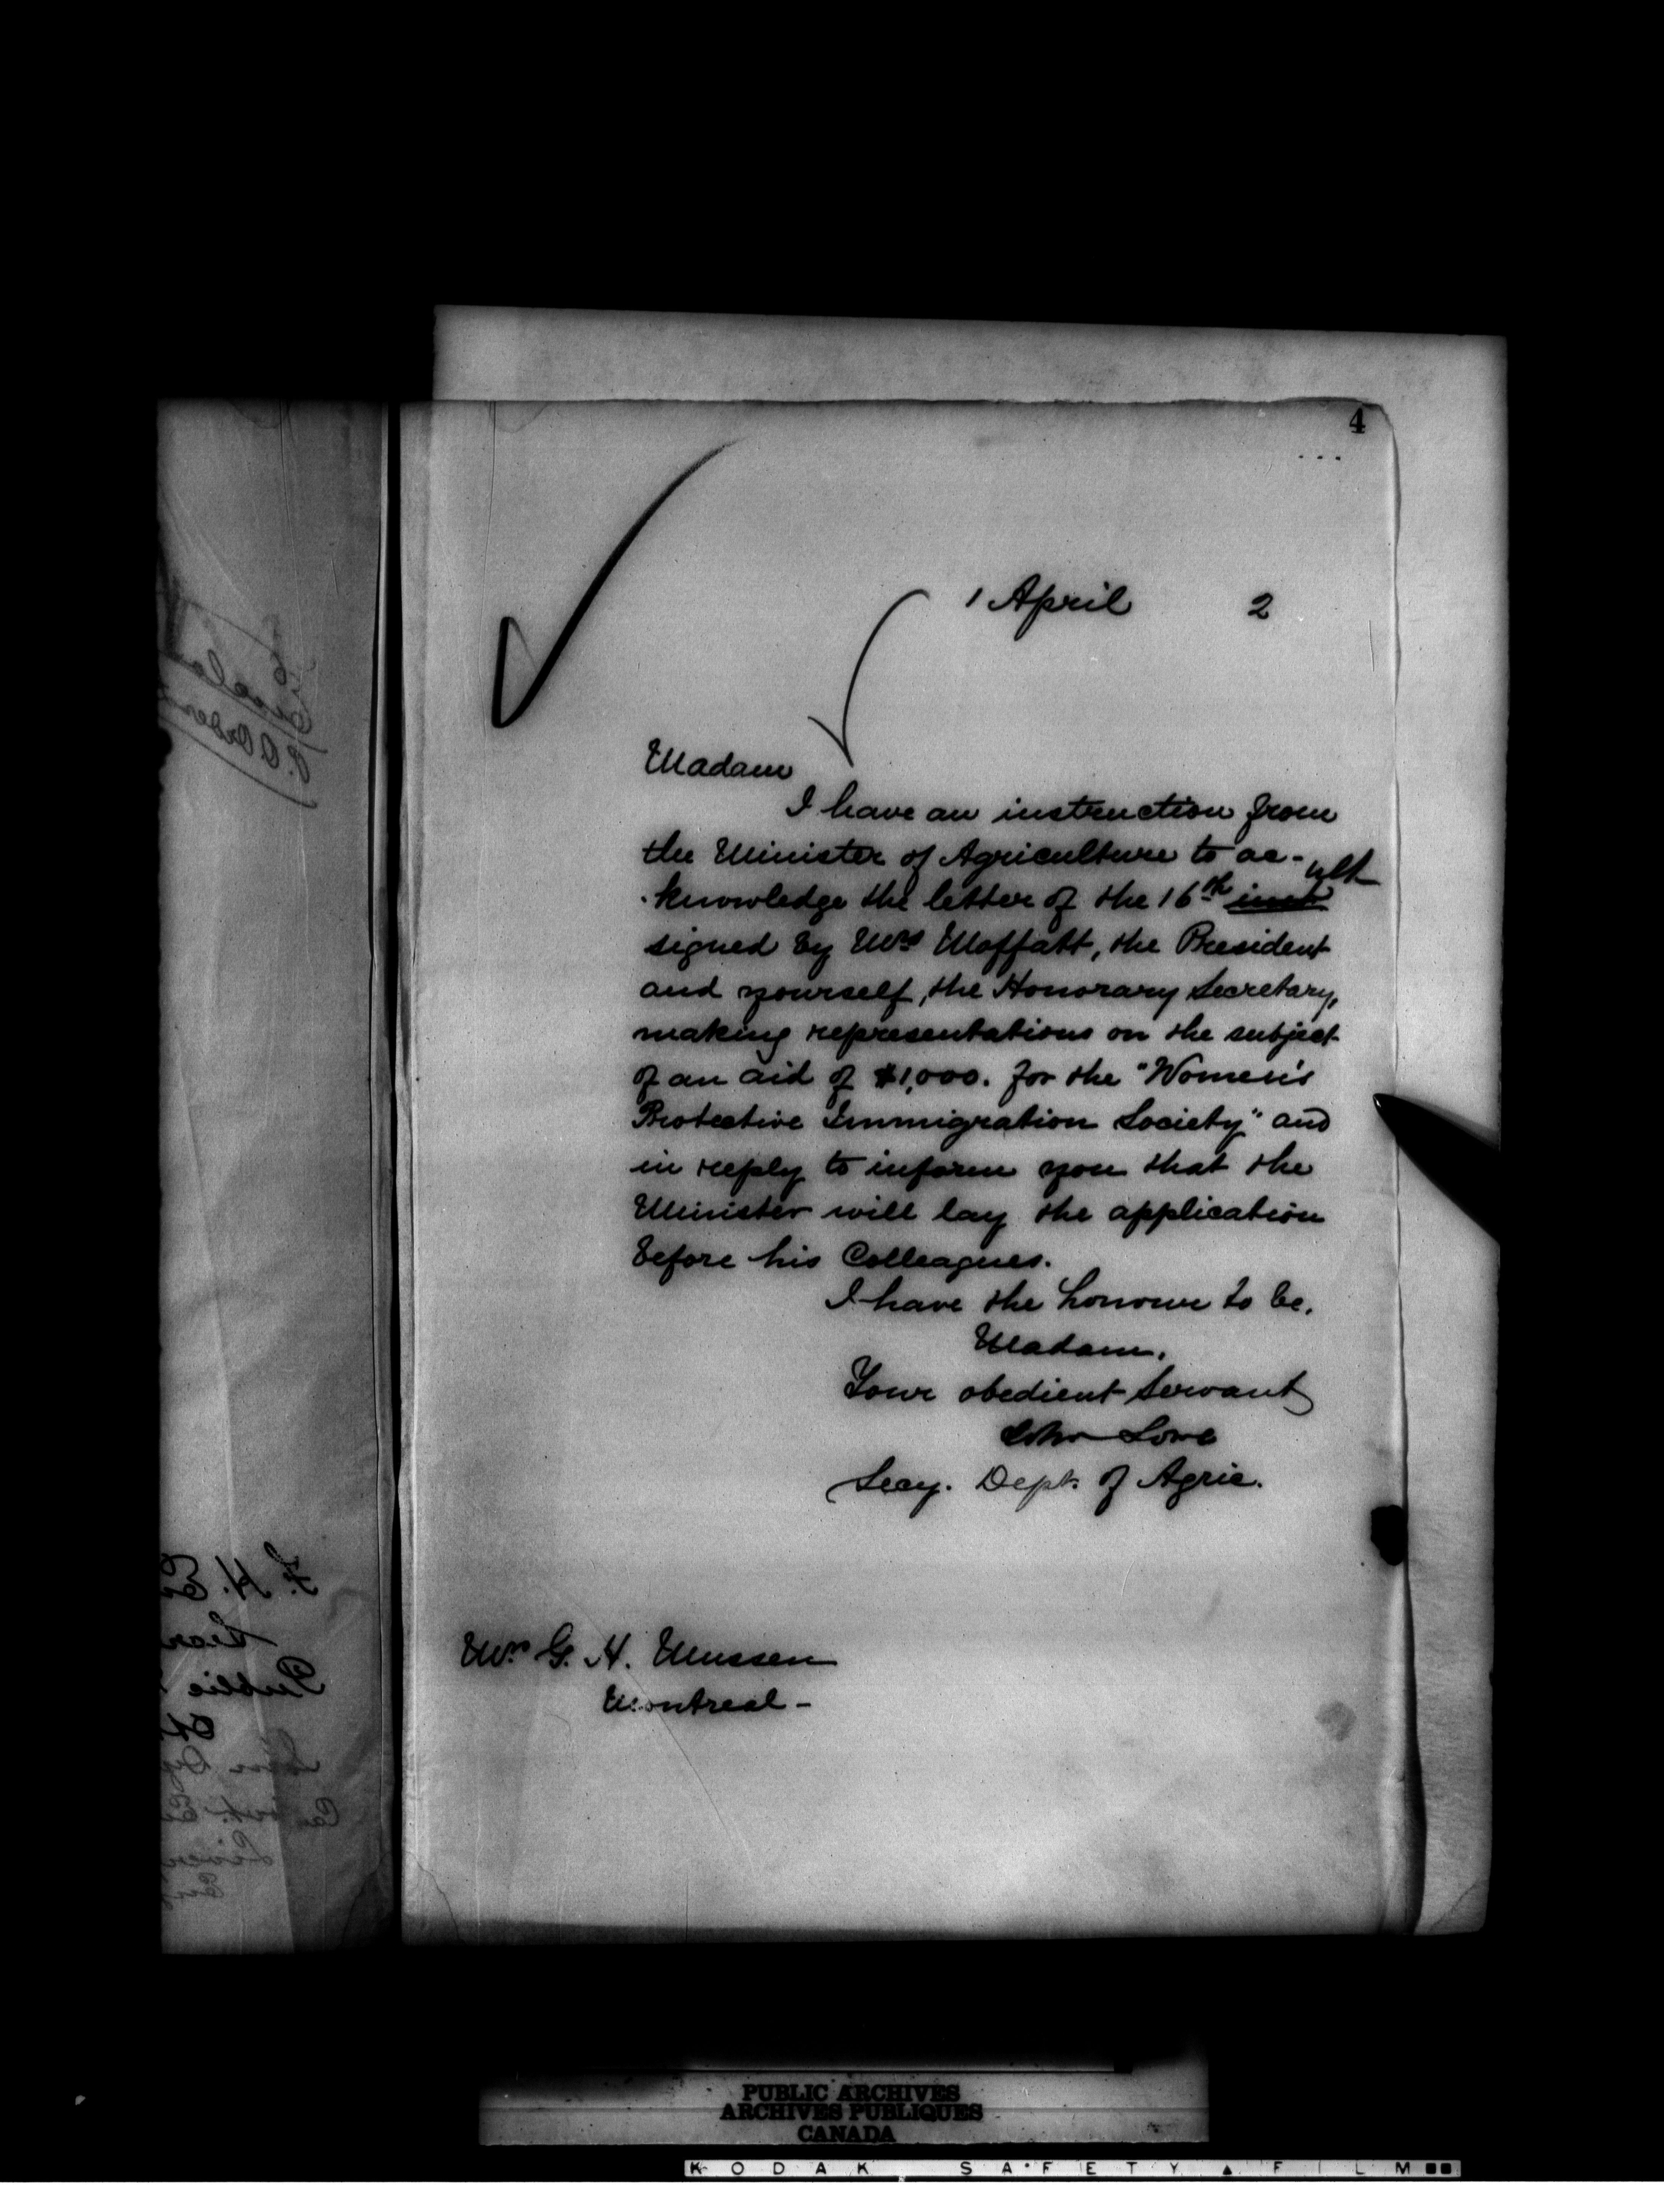 4
1 April 2
Madam
I have an instruction from
the Minister of Agriculture to ac-
-knowledge the letter of the 16th inst ult
signed by Mrs Moffatt, the President
and yourself, the Honorary Secretary,
making representations on the subject
of an aid of $1,000. for the "Women's
Protective Immigration Society" and
in reply to inform you that the
Minister will lay the application
before his Colleagues.
I have the honour to be,
Madam,
Your obedient Servant
John Lowe
Secy. Dept. of Agric.
Mrs G. H. Mussen
Montreal -
F. H.
Public
PUBLIC ARCHIVES
ARCHIVES PUBLIQUES
CANADA
KODAK SAFETY ▲ FILM